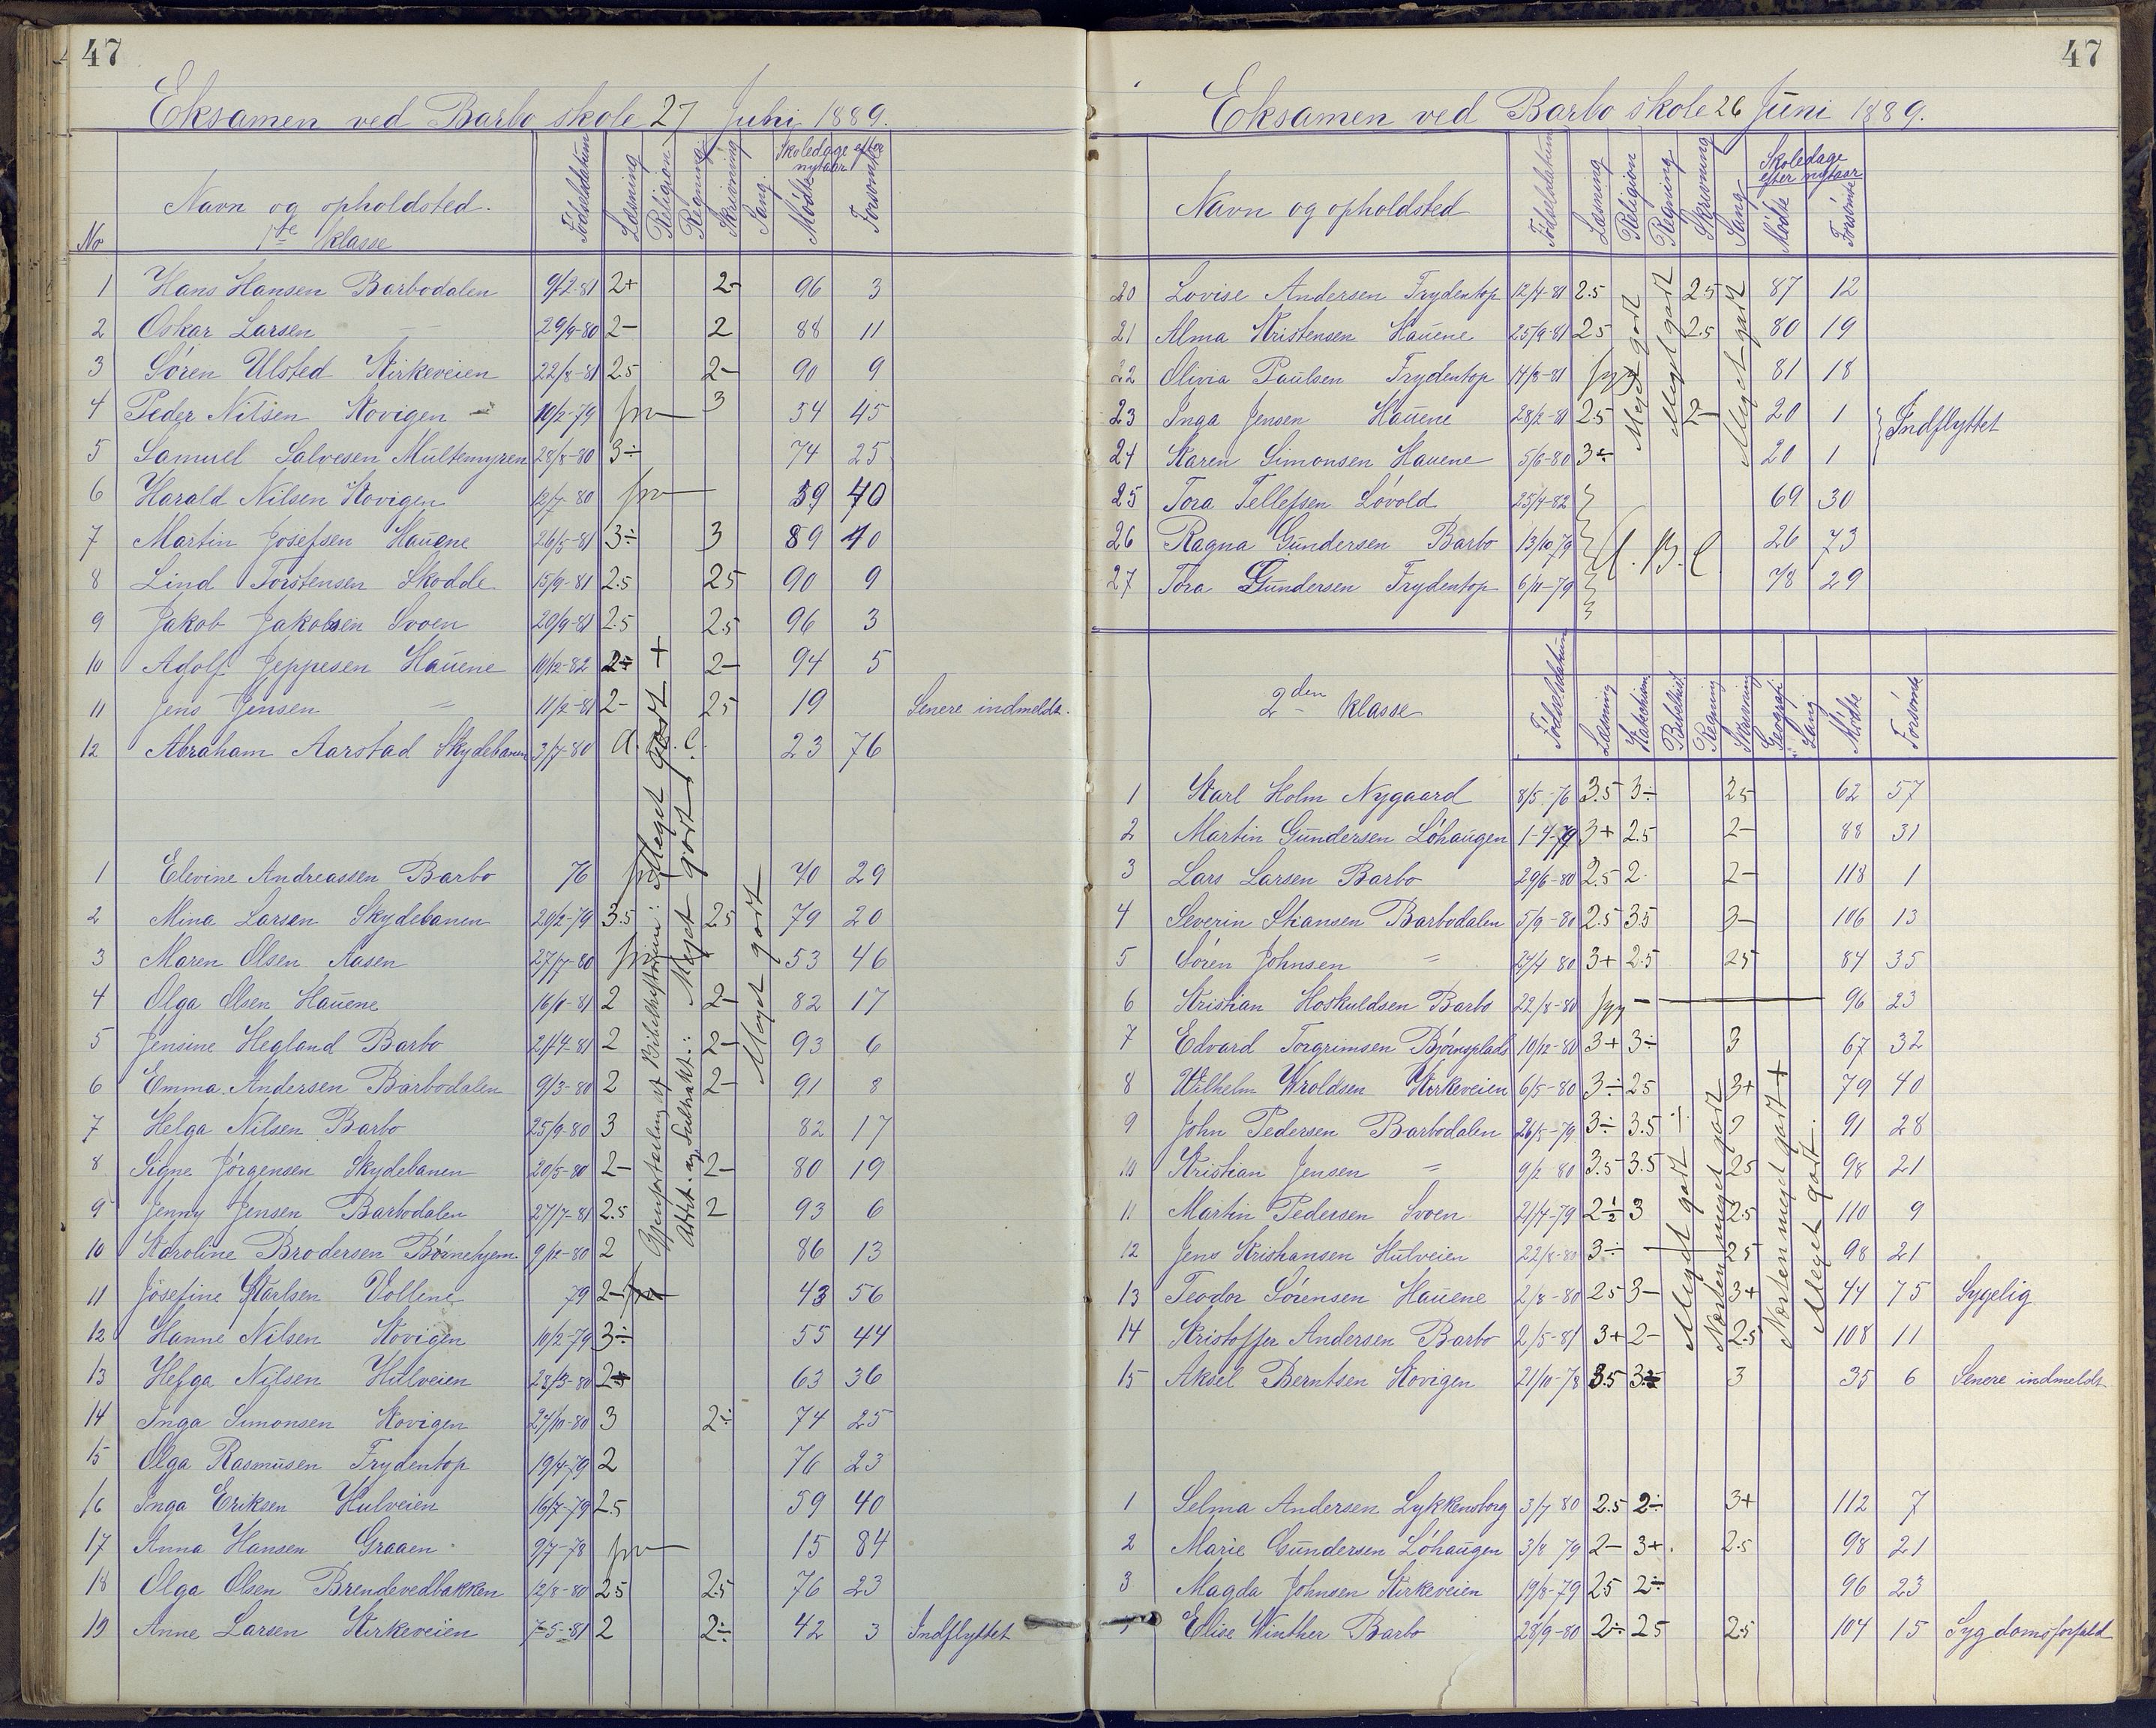 47
Eksamen ved Barbo skole 27 Juni 1889.
No Navn og opholdsted. 1te klasse Födselsdatum Læsning Religion Regning Skrivning Sang. Skoledage efter nytaar Mödte Forsömte
1 Hans Hansen Barbodalen 9/2-81 2+ 2- 96 3
2 Oskar Larsen — — 29/9-80 2- 2 88 11
3 Sören Ulsted Kirkeveien 22/8-81 2.5 2- 90 9
4 Peder Nilsen Kovigen 10/2-79 3 54 45
5 Samuel Salvesen Multemyren 28/8-80 3÷ 74 25
6 Harald Nilsen Kovigen 12/7-80 59 40
7 Martin Josefsen Hauene 26/5-81 3÷ 3 89 10
8 Lind Torstensen Skodde 15/9-81 2.5 25 90 9
9 Jakob Jakobsen Svoen 20/9-81 2.5 2.5 96 3
10 Adolf Jeppesen Hauene 10/12-82 2÷ 2- 94 5
11 Jens Jensen = 11/2-81 2- 25 19 Senere indmeldt.
12 Abraham Aarstad Skydebanen 3/7-80 23 76
Gjenfortælling af Bibelhistorien: Meget godt +
Addit. og Subtrakt.: Meget godt
Meget godt
1 Elevine Andreassen Barbo 76 70 29
2 Mina Larsen Skydebanen 20/2-79 3.5 25 79 20
3 Maren Olsen Aasen 27/7-80 53 46
4 Olga Olsen Hauene 16/1-81 2 2- 82 17
5 Jensine Hegland Barbo 21/4-81 2 2- 93 6
6 Emma Andersen Barbodalen 9/3-80 2 2- 91 8
7 Helga Nilsen Barbo 25/9-80 3 82 17
8 Signe Jörgensen Skydebanen 20/5-80 2- 2- 80 19
9 Jenny Jensen Barbodalen 27/7-81 2.5 2 93 6
10 Karoline Brodersen Börnehjem 9/12-80 2 86 13
11 Josefine Karlsen Vollene 79 2- 43 56
12 Hanne Nilsen Kovigen 10/2-79 3÷ 55 44
13 Helga Nilsen Hulveien 28/3-80 63 36
14 Inga Simonsen Kovigen 27/10-80 3 2÷ 74 25
15 Olga Rasmusen Frydentop 19/4-79 2 76 23
16 Inga Eriksen Hulveien 16/7-79 2.5 59 40
17 Anna Hansen Graaen 9/7-78 15 84
18 Olga Olsen Brendevedbakken 12/8-80 25 2.5 76 23
19 Anne Larsen Kirkeveien 7-5-81 2 2÷ 42 3 Indflyttet
47
Eksamen ved Barbo skole 26 Juni 1889.
Navn og opholdsted Födselsdatum Læsning Religion Regning Skrivning Sang Skoledage efter nytaar Mödte Forsömte
20 Lovise Andersen Frydentop 12/4-81 2.5 2.5 87 12
21 Alma Kristensen Hauene 25/9-81 25 2.5 80 19
22 Olivia Paulsen Frydentop 14/8-81 81 18
23 Inga Jensen Hauene 28/2-81 2.5 2- 20 1 Indflyttet
24 Karen Simonsen Hauene 5/6-80 3÷ 20 1
25 Tora Tellefsen Lövold 25/4-82 69 30
26 Ragna Gundersen Barbo 13/10-79 26 73
27 Tora Gundersen Frydentop 6/11-79 78 29
Meget godt
Meget godt
Meget godt
2den klasse Födselsdatum Læsning Katekism Bibelhist. Regning Skrivning Geografi Sang Mödte Forsömte
1 Karl Holm Nygaard 8/5-76 3.5 3÷ 25 62 57
2 Martin Gundersen Löhaugen 1-4-79 3+ 2.5 2- 88 31
3 Lars Larsen Barbo 29/6-80 2.5 2 2- 118 1
4 Severin Skansen Barbodalen 5/9-80 2.5 35 3- 106 13
5 Sören Johnsen = 27/4 80 3+ 2.5 25 84 35
6 Kristian Hoskuldsen Barbo 22/8-80 96 23
7 Edvard Torgrimsen Björnsplads 10/12-80 3+ 3÷ 3 67 32
8 Wilhelm Wroldsen Kirkeveien 6/5-80 3÷ 25 3+ 79 40
9 John Pedersen Barbodalen 26/5-79 3÷ 3.5 91 28
10 Kristian Jensen = 9/2 80 3.5 3.5 25 98 21
11 Martin Pedersen Svoen 21/4-79 2½ 3 25 110 9
12 Jens Kristiansen Hulveien 22/8-80 3÷ 25 98 21
13 Teodor Sörensen Hauene 2/8-80 25 3- 3+ 44 75 Sygelig
14 Kristoffer Andersen Barbo 2/5-81 3+ 2- 2.5 108 11
15 Aksel Berntsen Kovigen 21/10-78 3.5 3÷ 3 35 6 Senere indmeldt
Meget godt
Næsten meget godt
Næsten meget godt +
Meget godt.
1 Selma Andersen Lykkensborg 3/7 80 2.5 2÷ 3+ 112 7
2 Marie Gundersen Löhaugen 3/8 79 2- 3+ 2.5 98 21
3 Magda Johnsen Kirkeveien 19/8-79 25 2÷ 96 23
Elise Winther Barbo 28/9-80 2÷ 25 2.5 104 15 Sygdomsforfald